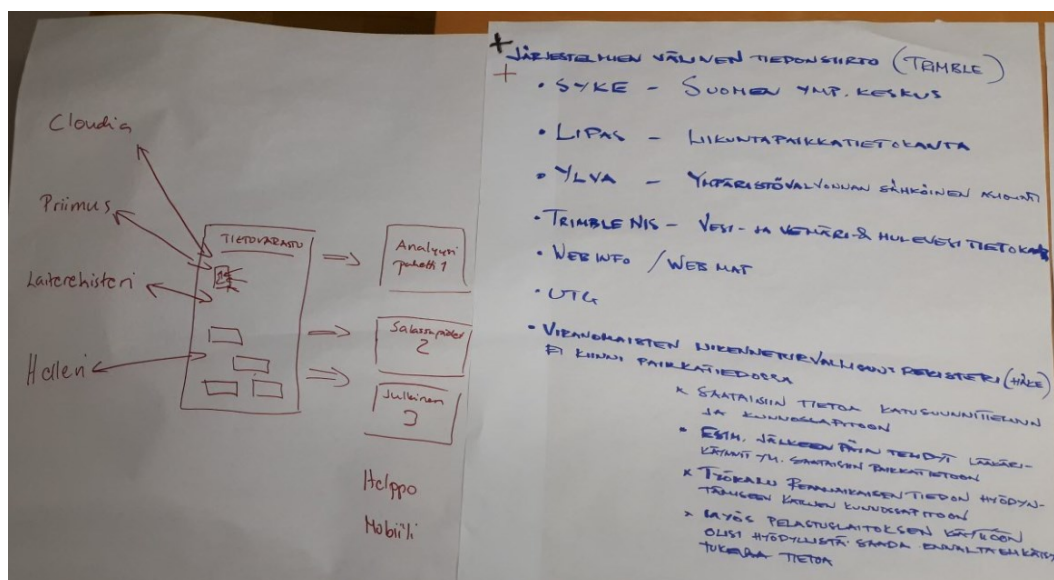 Cloudia
Priimus
Laiterekisteri
Helleri
TIETOVARASTO
Analyysi
paketti 1
Salassapidet
2
Julkinen
3
Helppo
Mobiili
JÄRJESTELMIEN VÄLINEN TIEDONSIIRTO (TAMBLE)
• SYKE – SUOMEN YMP. KESKUS
• LIPAS – LIIKUNTAPAIKKATIETOKANTA
• YLVA – YMPÄRISTÖVALVONNAN SÄHKÖINEN ASIOINTI
• TRIMBLE NIS – VESI- JA VIEMÄRI- & HULEVESITIETOKANTA
• WEB INFO / WEB MAT
• UTG
• VIRANOMAISTEN LIIKENNETURVALLISUUSREKISTERI (HÄKE)
EI KIINNI PAIKKATIEDOSSA
× SAATAISIIN TIETOA KATUSUUNNITTELUUN
JA KUNNOSSAPITOON
• ESIM. JÄLKEEN PÄIN TEHDYT LÄÄKÄRI-
KÄYNNIT YM. SAATAISIIN PAIKKATIETOON
× TYÖKALU REAALIAIKAISEN TIEDON HYÖDYN-
TÄMISEEN KATUJEN KUNNOSSAPITOON
× MYÖS PELASTUSLAITOKSEN KÄYTTÖÖN
OLISI HYÖDYLLISTÄ SAADA ENNALTAEHKÄISY
TUKEVAA TIETOA